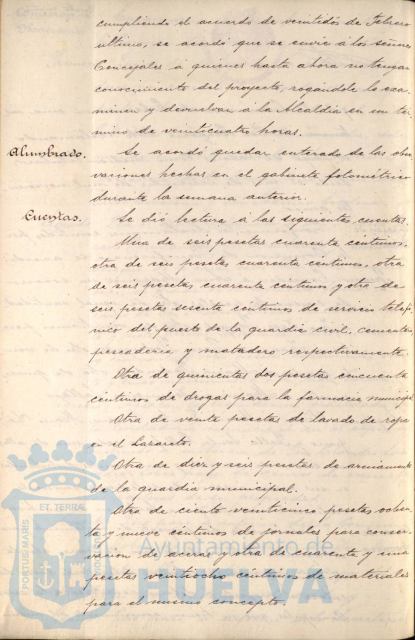 cumpliendo el acuerdo de veintidos de Febrero
último, se acordó que se envie á los señores
Concejales á quienes hasta ahora no tengan
conocimiento del proyecto, rogándole lo exa-
minen y devuelvan á la Alcaldia en un tér-
mino de veinticuatro horas.
Alumbrado.
Se acordó quedar enterado de las obser
vaciones hechas en el gabinete fotométrico
durante la semana anterior.
Cuentas.
Se dió lectura á las siguientes cuentas.
Una de seis pesetas cuarenta céntimos,
otra de seis pesetas cuarenta céntimos, otra
de seis pesetas cuarenta céntimos y otra de
seis pesetas sesenta céntimos de servicio telefó
nico del puesto de la guardia civil, cementerio
pescaderia y matadero respectivamente.
Otra de quinientas dos pesetas cincuenta
céntimos de drogas para la farmacia municipal
Otra de veinte pesetas de lavado de ropa
en el Lazareto.
Otra de diez y seis pesetas de
de la guardia municipal.
Otra de ciento veinticinco pesetas ochen-
ta y nueve céntimos de jornales para conser-
vacion de aceras y otra de cuarenta y una
pesetas veintiocho céntimos de materiales
para el mismo concepto.
PORTUS MARIS
ET. TERRAE
Ayuntamiento de
HUELVA